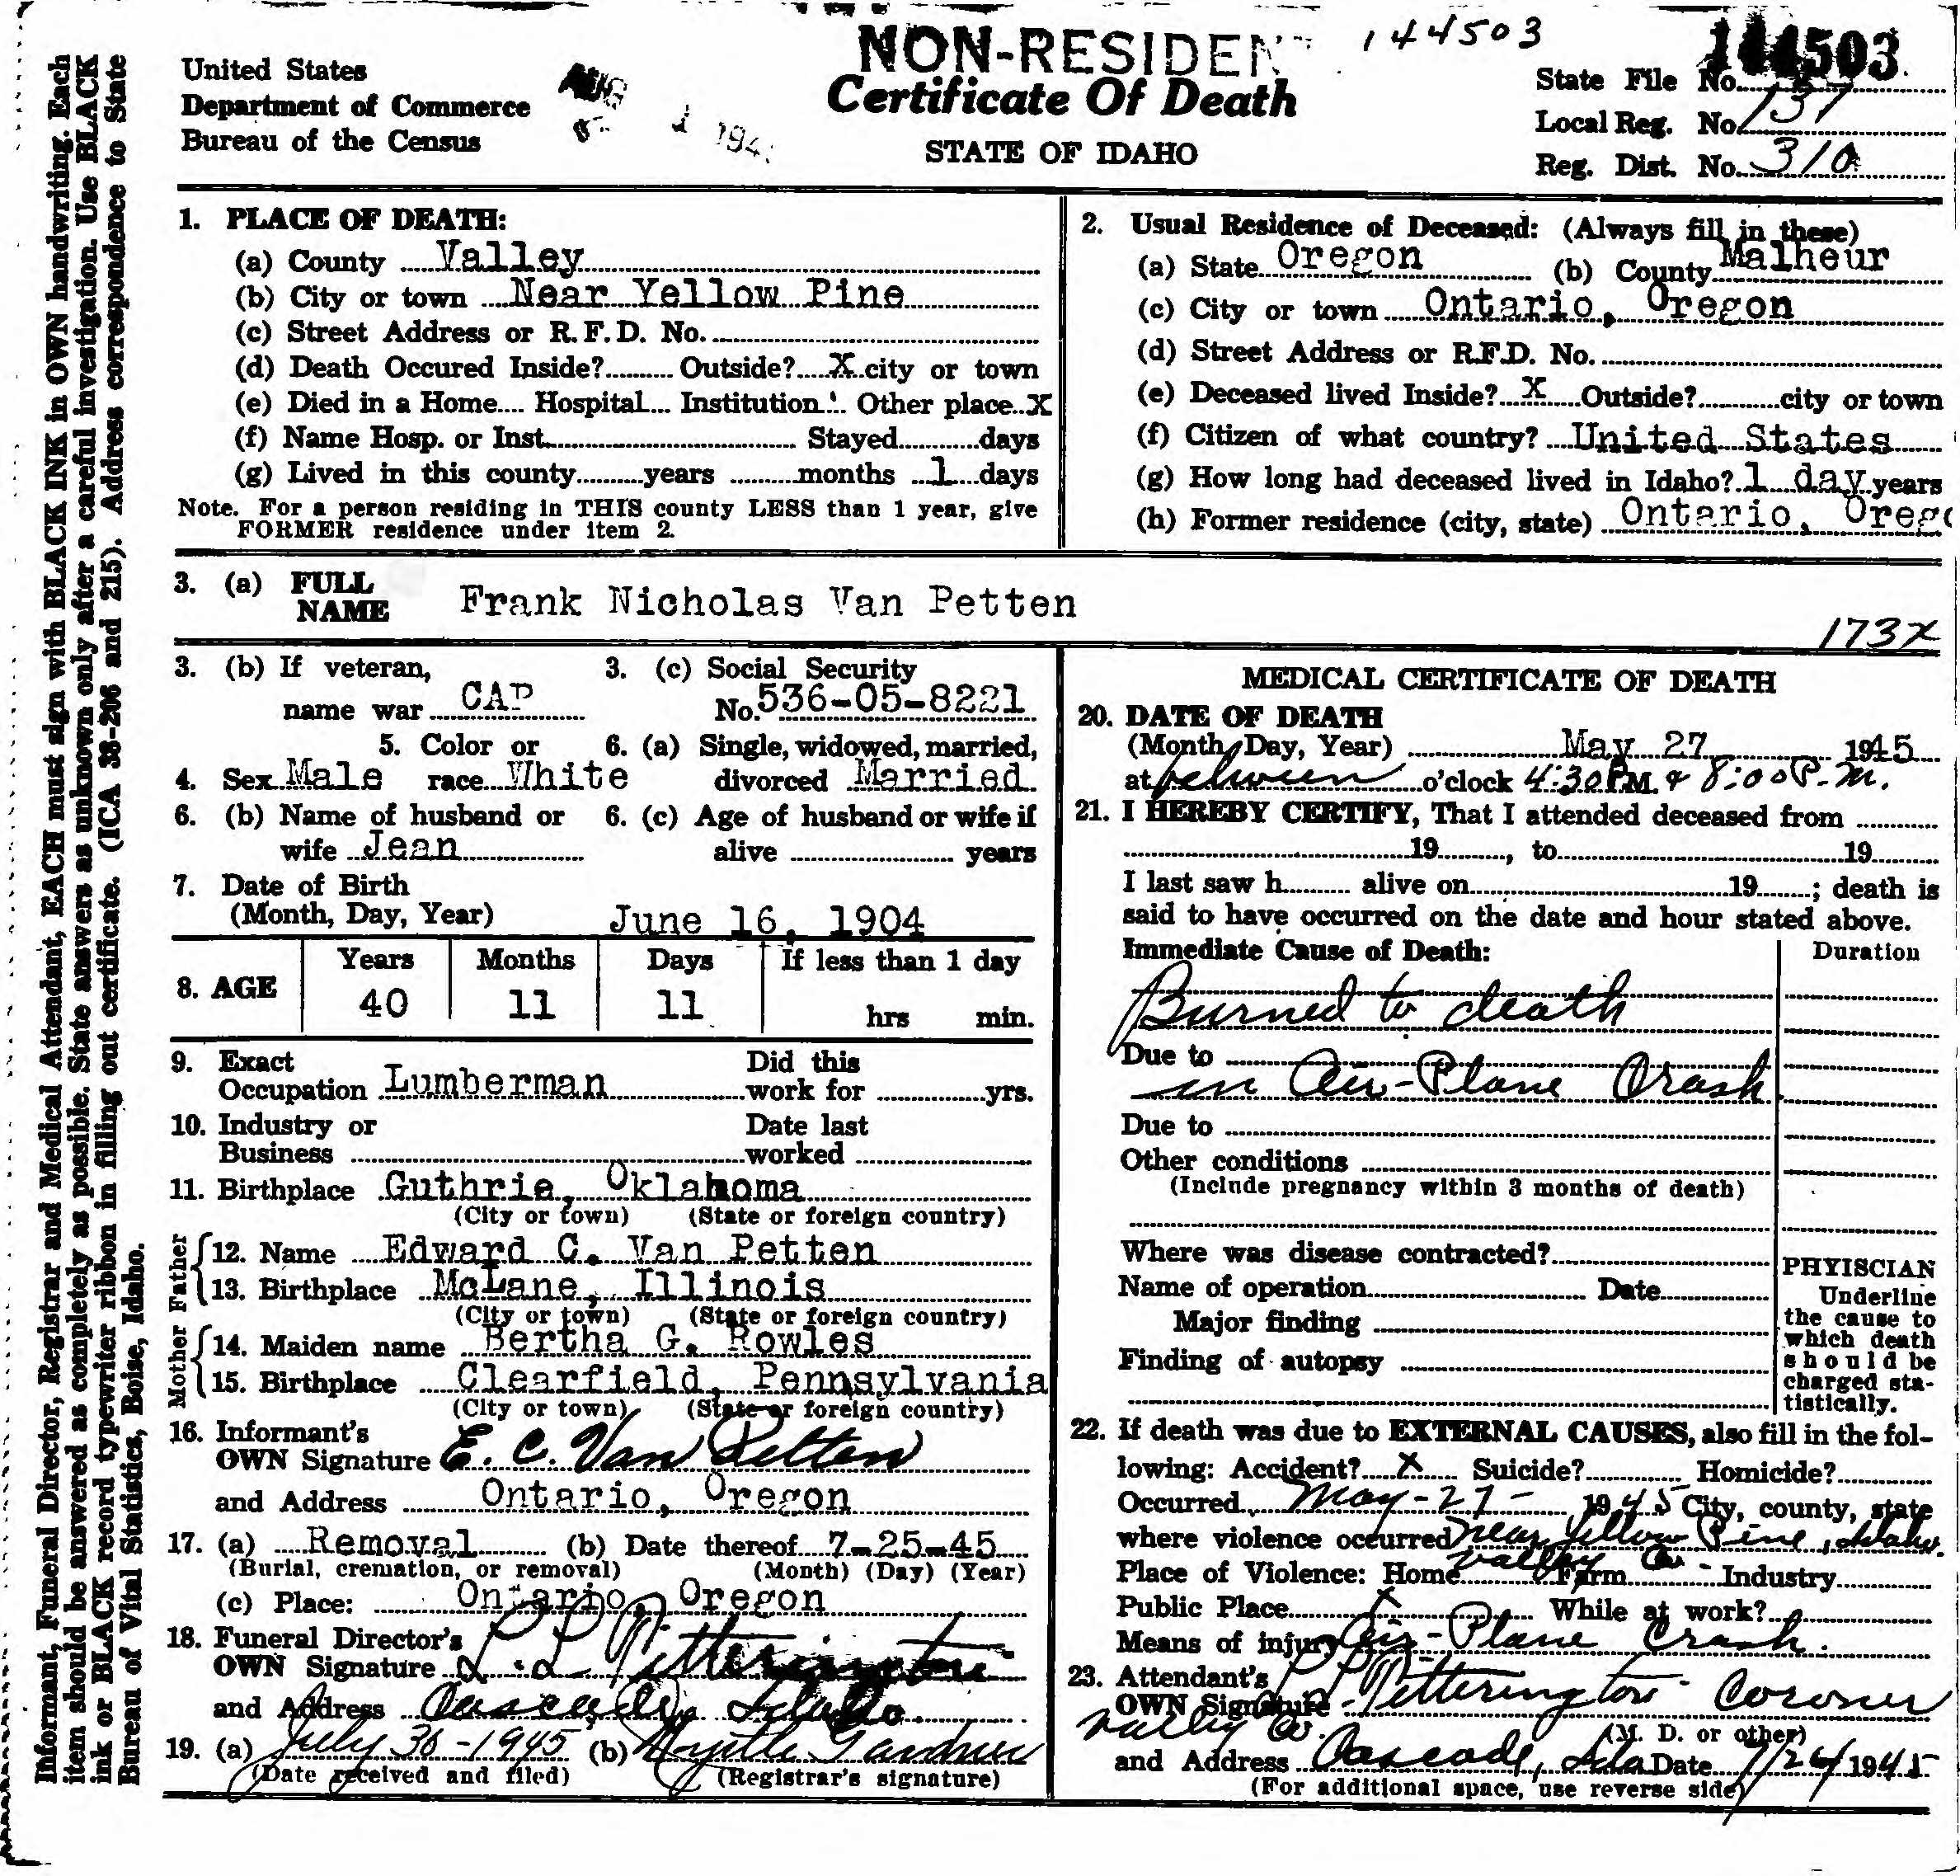 NON-RESIDENT 144503
United States
Department of Commerce
Bureau of the Census
AUG 1 194
Certificate Of Death
STATE OF IDAHO
State File No. 144503
Local Reg. No. 137
Reg. Dist. No. 310
1. PLACE OF DEATH:
(a) County Valley
(b) City or town Near Yellow Pine
(c) Street Address or R.F.D. No.
(d) Death Occured Inside? Outside? X city or town
(e) Died in a Home Hospital Institution Other place X
(f) Name Hosp. or Inst. Stayed days
(g) Lived in this county years months 1 days
Note. For a person residing in THIS county LESS than 1 year, give
FORMER residence under item 2.
2. Usual Residence of Deceased: (Always fill in these)
(a) State Oregon (b) County Malheur
(c) City or town Ontario, Oregon
(d) Street Address or R.F.D. No.
(e) Deceased lived Inside? X Outside? city or town
(f) Citizen of what country? United States
(g) How long had deceased lived in Idaho? 1 day years
(h) Former residence (city, state) Ontario, Oreg
3. (a) FULL NAME Frank Nicholas Van Petten
173X
3. (b) If veteran, name war CAP
3. (c) Social Security No. 536-05-8221
4. Sex Male 5. Color or race White 6. (a) Single, widowed, married, divorced Married
6. (b) Name of husband or wife Jean
6. (c) Age of husband or wife if alive years
7. Date of Birth
(Month, Day, Year) June 16, 1904
8. AGE Years 40 Months 11 Days 11 If less than 1 day hrs min.
9. Exact Occupation Lumberman Did this work for yrs.
10. Industry or Business Date last worked
11. Birthplace Guthrie, Oklahoma
(City or town) (State or foreign country)
Father
12. Name Edward C. Van Petten
13. Birthplace McLane, Illinois
(City or town) (State or foreign country)
Mother
14. Maiden name Bertha G. Rowles
15. Birthplace Clearfield, Pennsylvania
(City or town) (State or foreign country)
16. Informant's
OWN Signature E. C. Van Petten
and Address Ontario, Oregon
17. (a) Removal (b) Date thereof 7-25-45
(Burial, cremation, or removal) (Month) (Day) (Year)
(c) Place: Ontario, Oregon
18. Funeral Director's
OWN Signature Pitterington
and Address Cascade, Idaho.
19. (a) July 30-1945 (b) Myrtle Gardner
(Date received and filed) (Registrar's signature)
MEDICAL CERTIFICATE OF DEATH
20. DATE OF DEATH
(Month, Day, Year) May 27 1945
at between o'clock 4:30 P.M. & 8:00 P.M.
21. I HEREBY CERTIFY, That I attended deceased from
19 , to 19
I last saw h alive on 19 ; death is
said to have occurred on the date and hour stated above.
Immediate Cause of Death: Duration
Burned to death
Due to
in Air-Plane Crash
Due to
Other conditions
(Include pregnancy within 3 months of death)
Where was disease contracted?
Name of operation Date
Major finding
Finding of autopsy
PHYISCIAN
Underline
the cause to
which death
should be
charged sta-
tistically.
22. If death was due to EXTERNAL CAUSES, also fill in the fol-
lowing: Accident? X Suicide? Homicide?
Occurred May-27- 1945 City, county, state
where violence occurred near Yellow Pine, Idaho.
Valley Co
Place of Violence: Home Farm Industry
Public Place X While at work?
Means of injury Air-Plane Crash.
23. Attendant's
OWN Signature Pitterington - Coroner
Valley Co. (M. D. or other)
and Address Cascade, Ida Date 7/26/1945
(For additional space, use reverse side)
Informant, Funeral Director, Registrar and Medical Attendant, EACH must sign with BLACK INK in OWN handwriting. Each
item should be answered as completely as possible. State answers as unknown only after a careful investigation. Use BLACK
ink or BLACK record typewriter ribbon in filling out certificate. (ICA 38-206 and 215). Address correspondence to State
Bureau of Vital Statistics, Boise, Idaho.